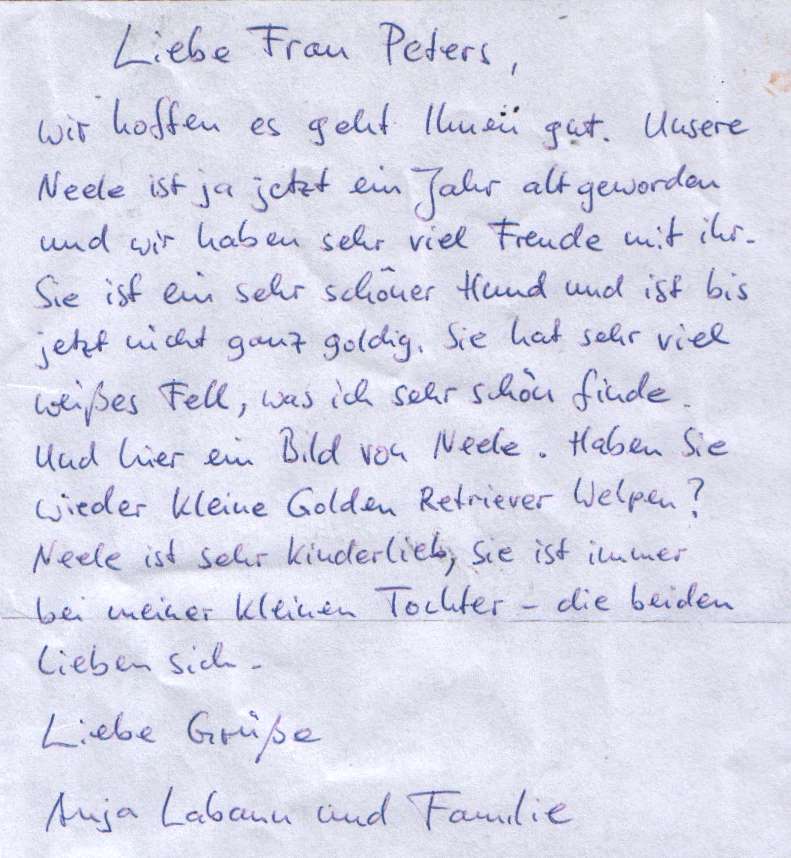 Liebe Frau Peters,
wir hoffen es geht Ihnen gut. Unsere
Neele ist ja jetzt ein Jahr alt geworden
und wir haben sehr viel Freude mit ihr.
Sie ist ein sehr schöner Hund und ist bis
jetzt nicht ganz goldig. Sie hat sehr viel
weißes Fell, was ich sehr schön finde.
Und hier ein Bild von Neele. Haben Sie
wieder kleine Golden Retriever Welpen?
Neele ist sehr kinderlieb, sie ist immer
bei meiner kleinen Tochter - die beiden
lieben sich.
Liebe Grüße
Anja Labann und Familie